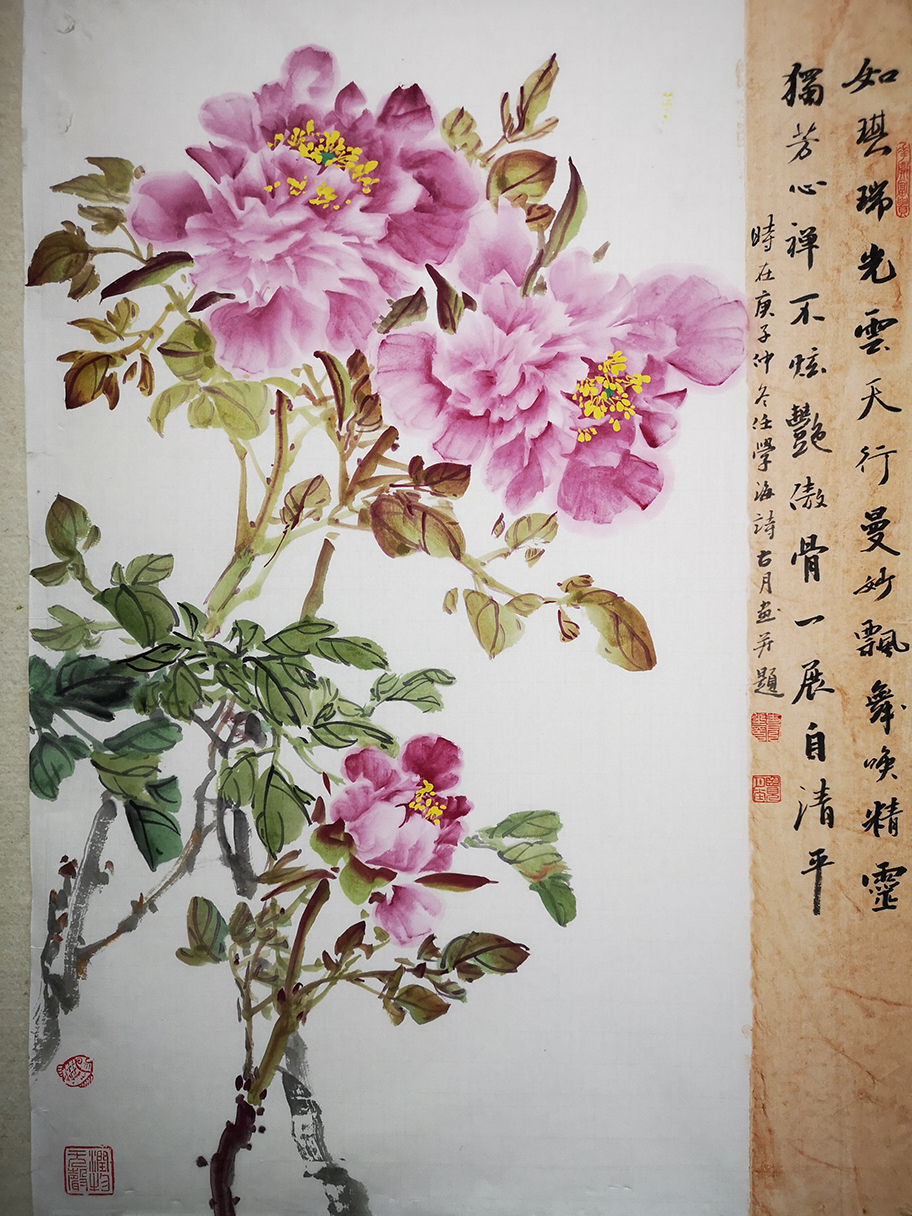 如琪瑞光雲天行曼妙飄舞喚精靈
獨芳心禪不眩艷傲骨一展自清平
時在庚子仲冬任學海詩古月画并題
潤物
無聲